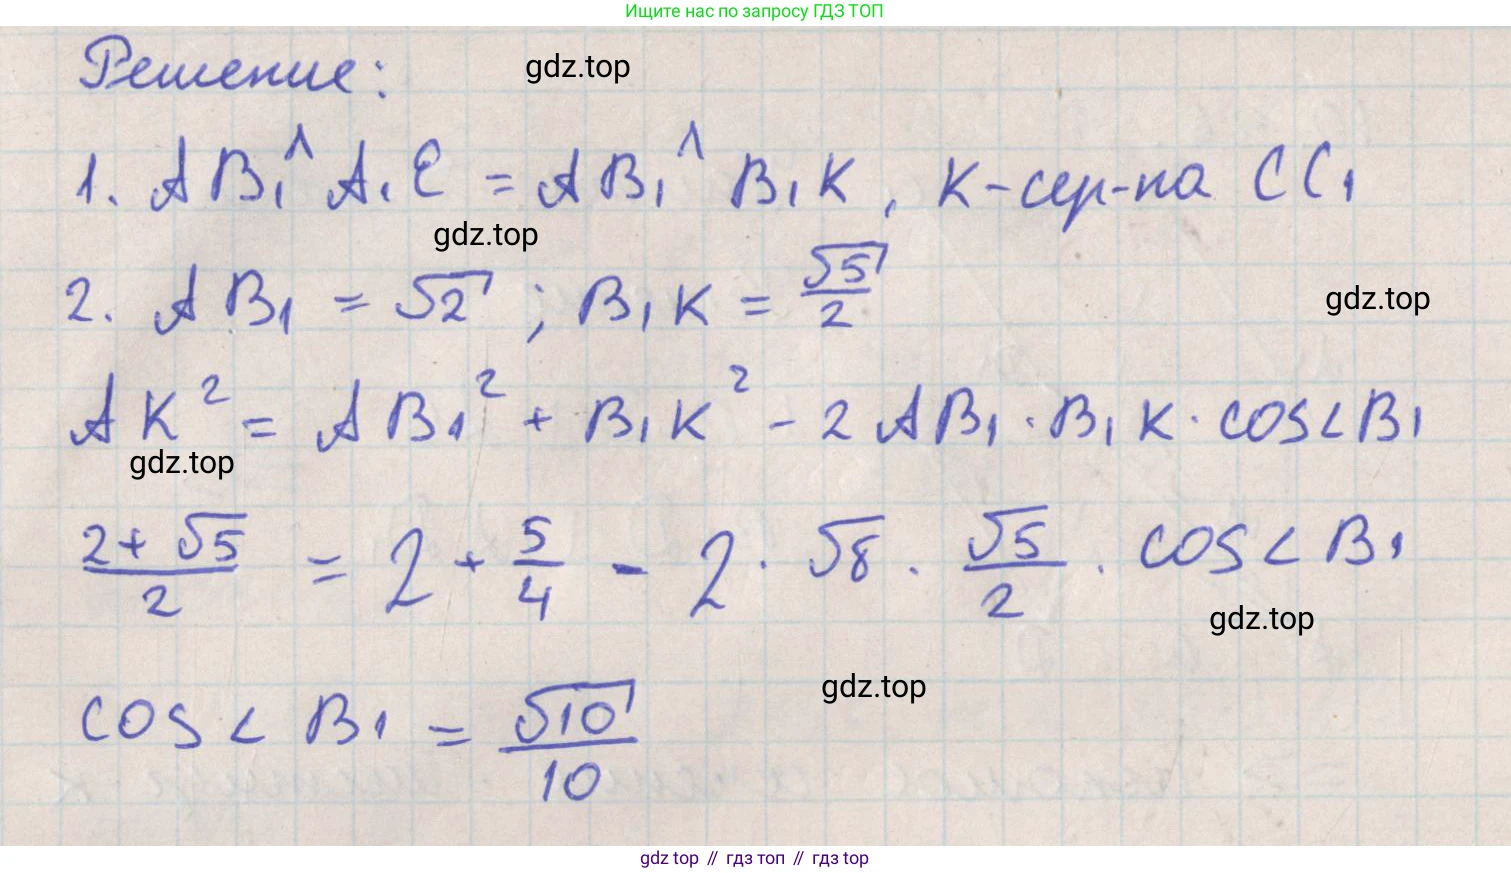 Ищите нас по запросу ГДЗ ТОП
Решение:
gdz.top
1. AB₁ ^ A₁E = AB₁ ^ B₁K, K-сер-на CC₁
gdz.top
2. AB₁ = √2 ; B₁K = √5/2
gdz.top
AK² = AB₁² + B₁K² - 2 AB₁ · B₁K · cos∠B₁
gdz.top
2+√5/2 = 2 + 5/4 - 2 · √8 · √5/2 · cos∠B₁
gdz.top
gdz.top
cos∠B₁ = √10/10
gdz top // гдз топ // гдз top